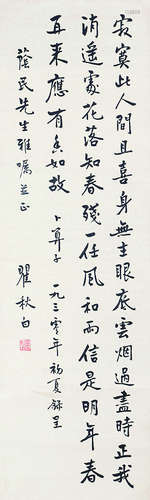 寂寞此人間且喜身無主眼底雲烟過盡時正我
逍遥處花落知春殘一任風和雨信是明年春
再來應有香如故 卜算子 一九三零年初夏錄呈
蔭民先生雅囑並正 瞿秋白